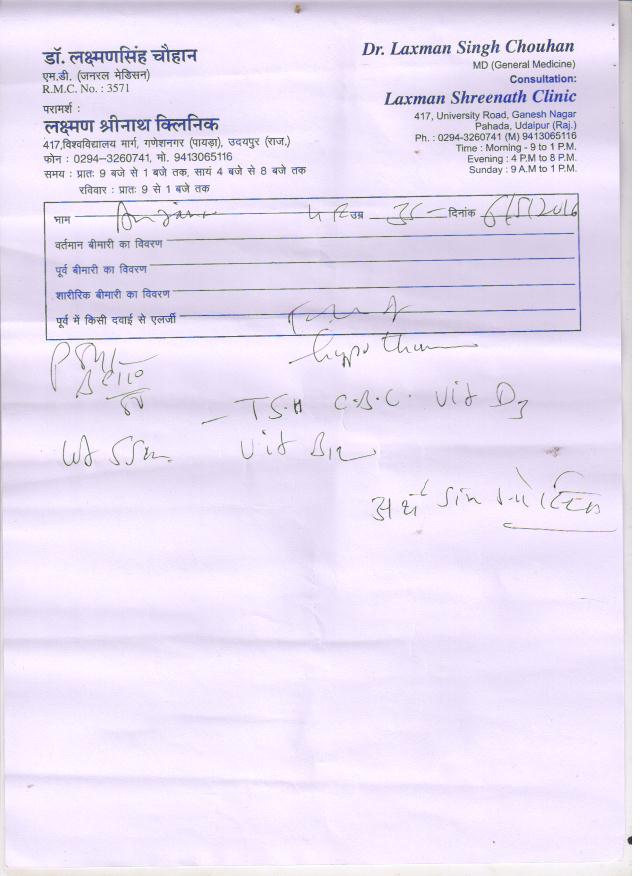 डॉ. लक्ष्मणसिंह चौहान
एम.डी. (जनरल मेडिसन)
R.M.C. No. : 3571
परामर्श :
लक्ष्मण श्रीनाथ क्लिनिक
417,विश्वविद्यालय मार्ग, गणेशनगर (पायड़ा), उदयपुर (राज,)
फोन : 0294–3260741, मो. 9413065116
समय : प्रातः 9 बजे से 1 बजे तक, सायं 4 बजे से 8 बजे तक
रविवार : प्रातः 9 से 1 बजे तक
Dr. Laxman Singh Chouhan
MD (General Medicine)
Consultation:
Laxman Shreenath Clinic
417, University Road, Ganesh Nagar
Pahada, Udaipur (Raj.)
Ph. : 0294-3260741 (M) 9413065116
Time : Morning - 9 to 1 P.M.
Evening : 4 P.M to 8 P.M.
Sunday : 9 A.M to 1 P.M.
नाम उम्र 35 दिनांक 6/5/2016
वर्तमान बीमारी का विवरण
पूर्व बीमारी का विवरण
शारीरिक बीमारी का विवरण
पूर्व में किसी दवाई से एलर्जी
TSH C.B.C. Vit D3
Vit B12